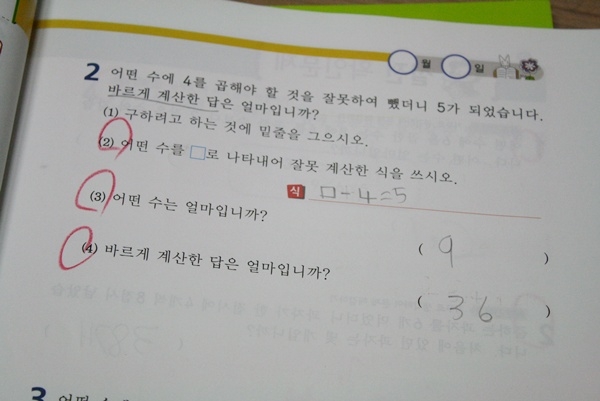 월 일
2 어떤 수에 4를 곱해야 할 것을 잘못하여 뺐더니 5가 되었습니다.
바르게 계산한 답은 얼마입니까?
(1) 구하려고 하는 것에 밑줄을 그으시오.
(2) 어떤 수를 □로 나타내어 잘못 계산한 식을 쓰시오.
식 □-4=5
(3) 어떤 수는 얼마입니까?
( 9 )
(4) 바르게 계산한 답은 얼마입니까?
( 36 )
3 어떤